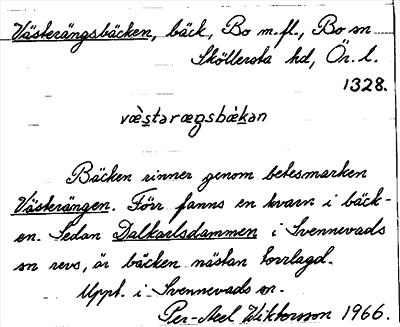 Västerängsbäcken, bäck, Bo m.fl., Bo sn
Sköllersta hd, Ör. l.
1328.
væ̀starængsbæ̀kan
Bäcken rinner genom betesmarken
Västerängen. Förr fanns en kvarn i bäck-
en. Sedan Dalkarlsdammen i Svennevads
sn revs, är bäcken nästan torrlagd.
Uppt. i Svennevads sn.
Per-Axel Wiktorsson 1966.